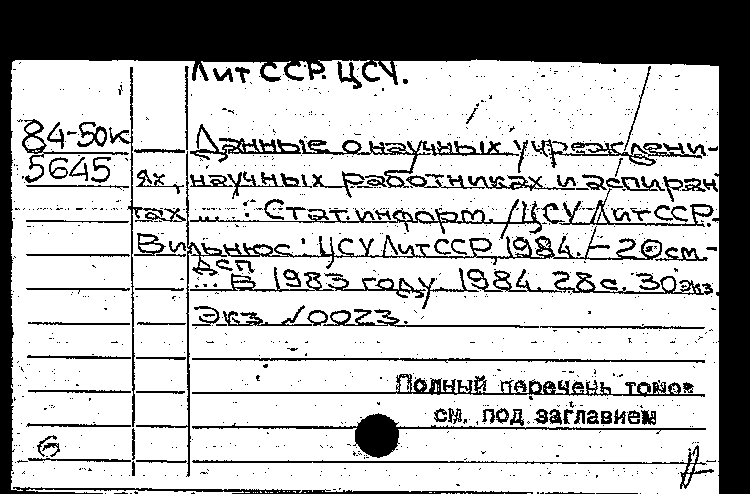 Лит ССР. ЦСУ.
84-50к
5645
Данные о научных учреждени-
ях, научных работниках и аспиран
тах ... : Стат. информ. / ЦСУ ЛитССР.-
Вильнюс : ЦСУ ЛитССР, 1984. - 20 см.-
ДСП
... В 1983 году. 1984. 28 с. 30 экз.
Экз. №0023.
Полный перечень томов
см. под заглавием
6